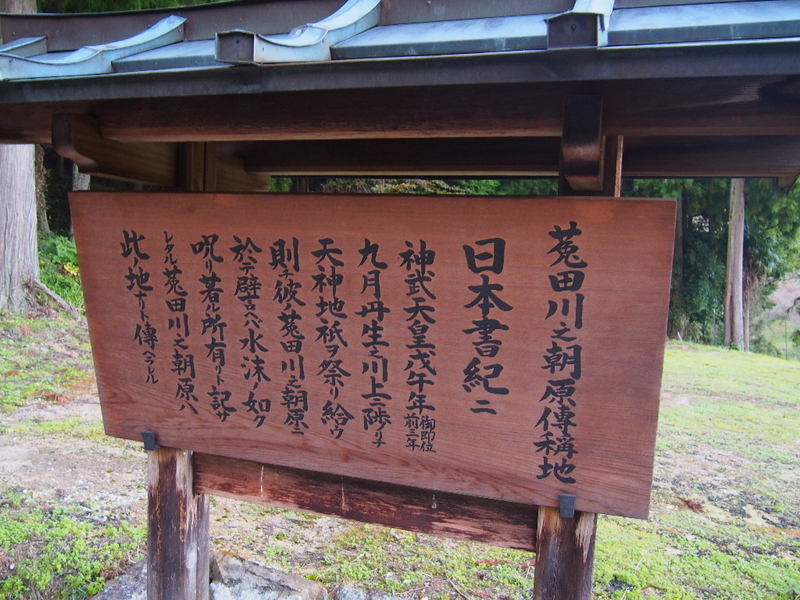 菟田川之朝原傳稱地
日本書紀ニ
神武天皇戊午年御即位前三年
九月丹生之川上ニ陟リテ
天神地祇ヲ祭リ給ウ
則チ彼ノ菟田川之朝原ニ
於テ譬ヘバ水沫ノ如ク
呪リ著ル所有リト記サ
レタル菟田川之朝原ハ
此ノ地ナリト傳ヘラレル